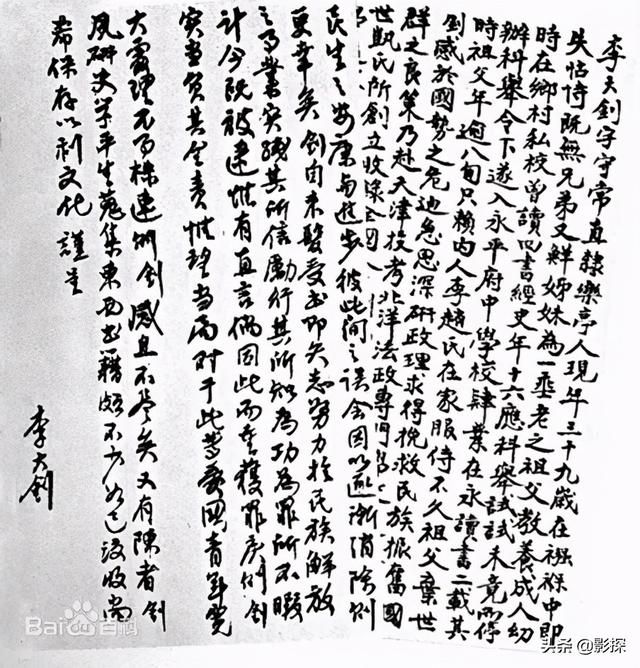 李大釗字守常直隸樂亭人現年三十九歲在襁褓中即
失怙恃既無兄弟又鮮姊妹為一垂老之祖父教養成人幼
時在鄉村私校曾讀四書經史年十六應科舉試試未竟而停
辦科舉令下遂入永平府中學校肄業在永讀書二載其
時祖父年逾八旬只賴內人李趙氏在家服侍不久祖父棄世
釗感於國勢之危迫急思深研政理求得挽救民族振奮國
群之良策乃赴天津投考北洋法政專門
世凱氏所創立收錄全國
民生之安康與進步彼此間之誤會因以逐漸消除則
更幸矣釗自束髮受書即矢志努力於民族解放
之事業實踐其所信勵行其所知為功為罪所不暇
計今既被逮惟有直言倘因此而重獲罪戾則釗
實當負其全責惟望當局對于此等愛國青年寬
大處理不事株連則釗感且不盡矣又有陳者釗
夙研史學平生蒐集東西書籍頗不少如已沒收尚
希保存以利文化謹呈
李大釗
Baidu百科
头条 @影探